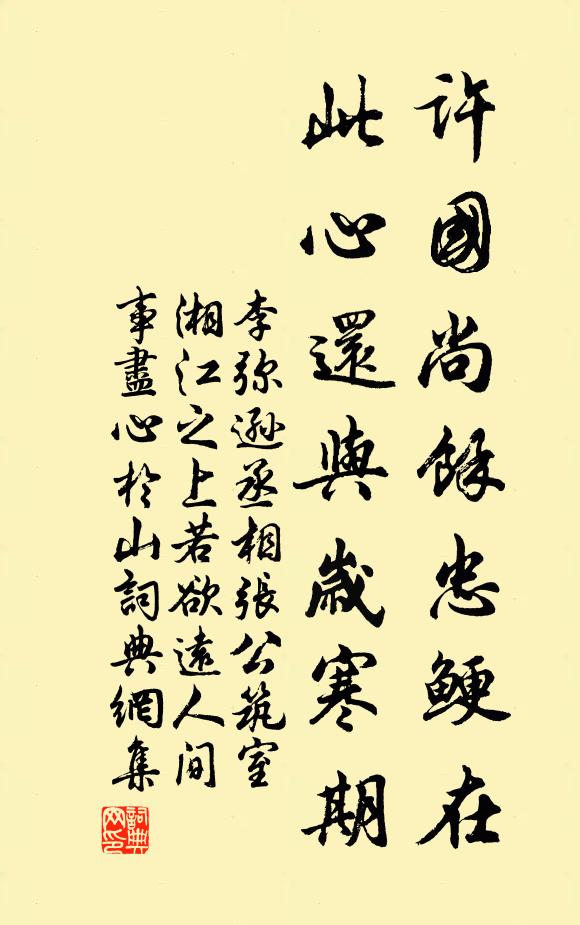 許國尚餘忠鯁在
此心還與歲寒期
李弥遜丞相張公筑室
湘江之上若欲遠人间
事盡心於山詞典網集
詞典網印